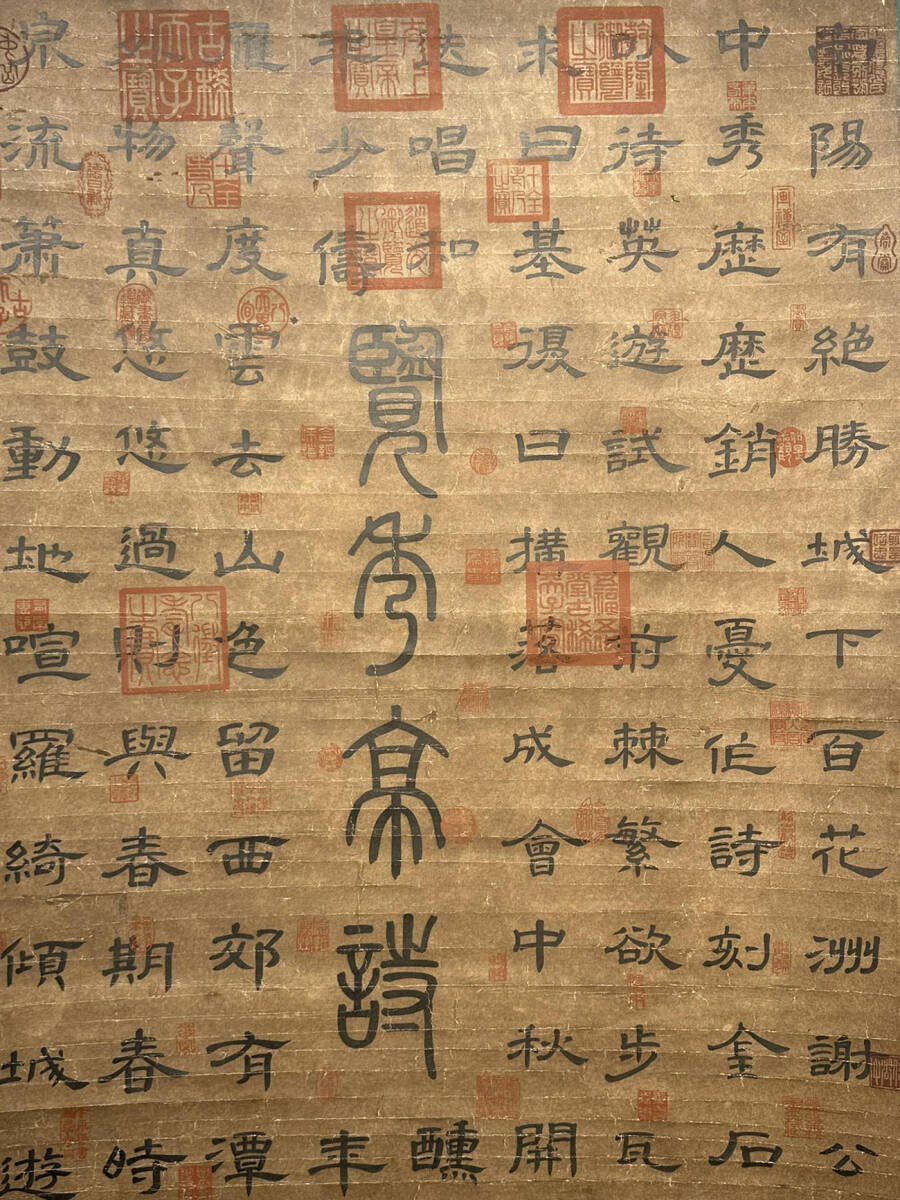 南陽有絕勝城下百花洲謝公
中秀歷歷銷人憂作詩刻金石
以待英遊試觀荊棘繁欲步瓦
求曰基復曰搆落成會中秋開
迭唱和醺
年少儔
覽秀亭詩
雁聲度雲去山色留西郊有潭
物真悠悠過則與春期春時
流簫鼓動地喧羅綺傾城遊